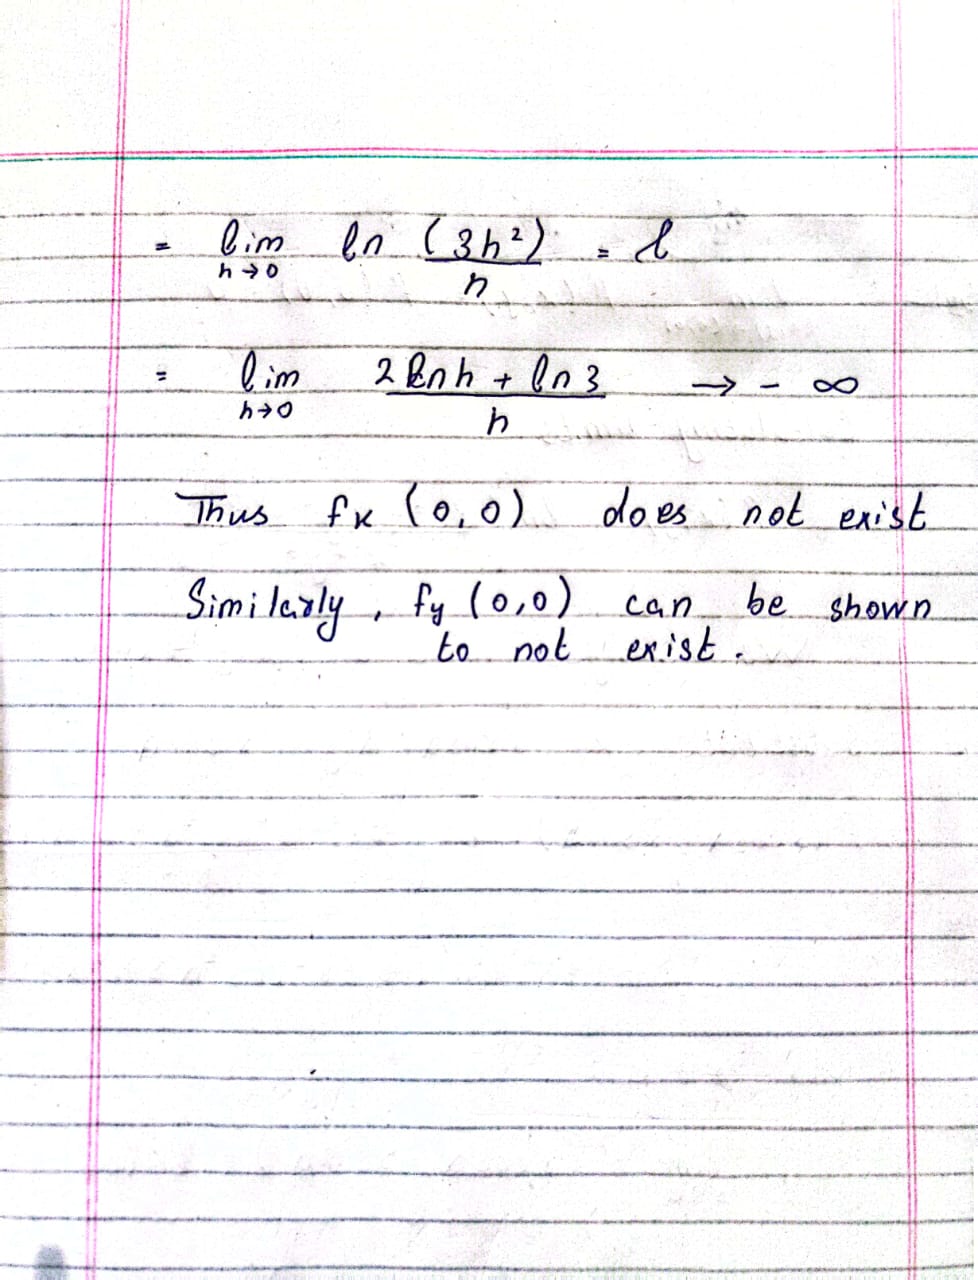 = lim ln (3h²) = l
h→0 h
= lim 2 ln h + ln 3 → - ∞
h→0 h
Thus fx (0,0) does not exist
Similarly, fy (0,0) can be shown
to not exist.